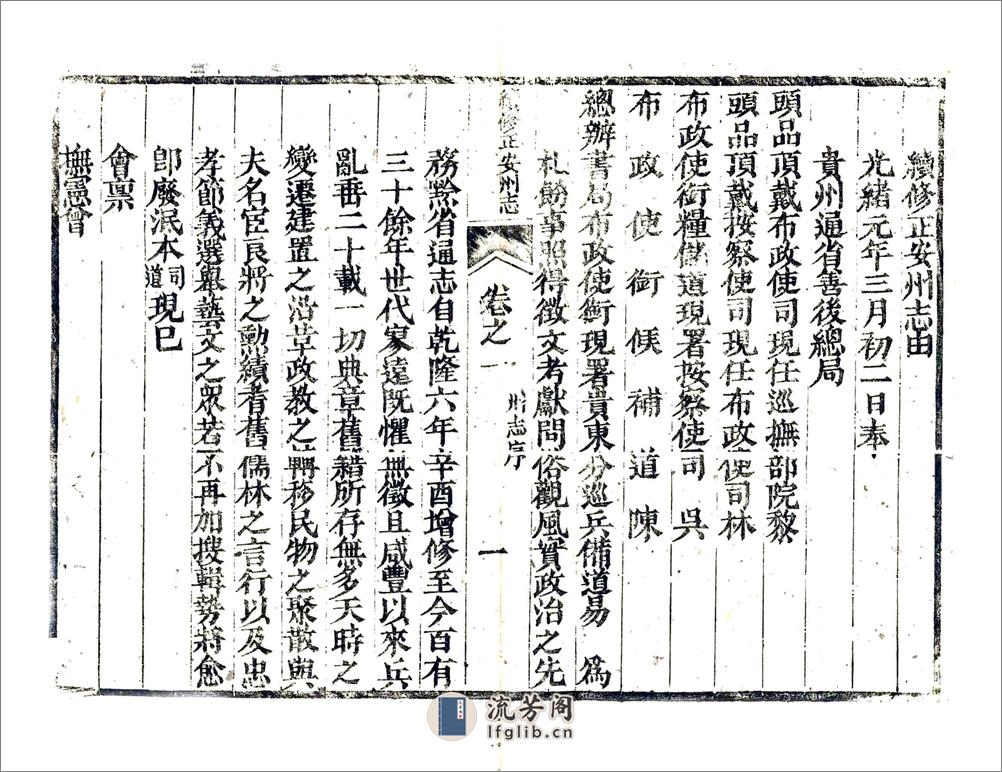 續修正安州志由
光緒元年三月初二日奉
貴州通省善後總局
頭品頂戴布政使司現任巡撫部院黎
頭品頂戴按察使司現任布政使司林
布政使銜糧儲道現署按察使司吳
布政使銜候補道陳
總辦書局布政使銜現署貴東分巡兵備道易　為
札飭事照得徵文考獻問俗觀風實政治之先
續修正安州志
卷之一
州志序
一
務黔省通志自乾隆六年辛酉增修至今百有
三十餘年世代家遠既懼無徵且咸豐以來兵
亂垂二十載一切典章舊籍所存無多天時之
變遷建置之沿革政教之轉移民物之聚散與
夫名宦良將之勳績耆舊儒林之言行以及忠
孝節義選舉藝文之眾若不再加搜輯勢將愈
卽廢泯本司道現已
會稟
撫憲會
流芳阁
lfglib.cn